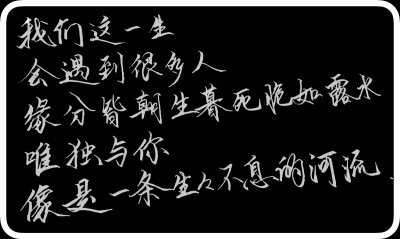 我们这一生
会遇到很多人
缘分皆朝生暮死脆如露水
唯独与你
像是一条生々不息的河流.